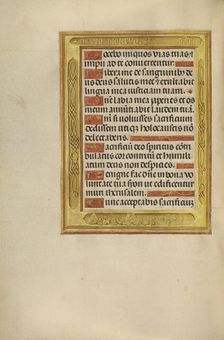 Docebo iniquos vias tuas et
impii ad te convertentur.
Libera me de sanguinibus de
us deus salutis mee et exultabit
lingua mea iusticiam tuam.
Domine labia mea aperies et os
meum annunciabit laudem tuam.
Quoniam si voluisses sacrificium
dedissem utique holocaustis non
delectaberis.
Sacrificium deo spiritus contri
bulatus cor contritum et humili
atum deus non despicies.
Benigne fac domine in bona vo
luntate tua syon ut edificentur
muri iherusalem.
Tunc acceptabis sacrificium